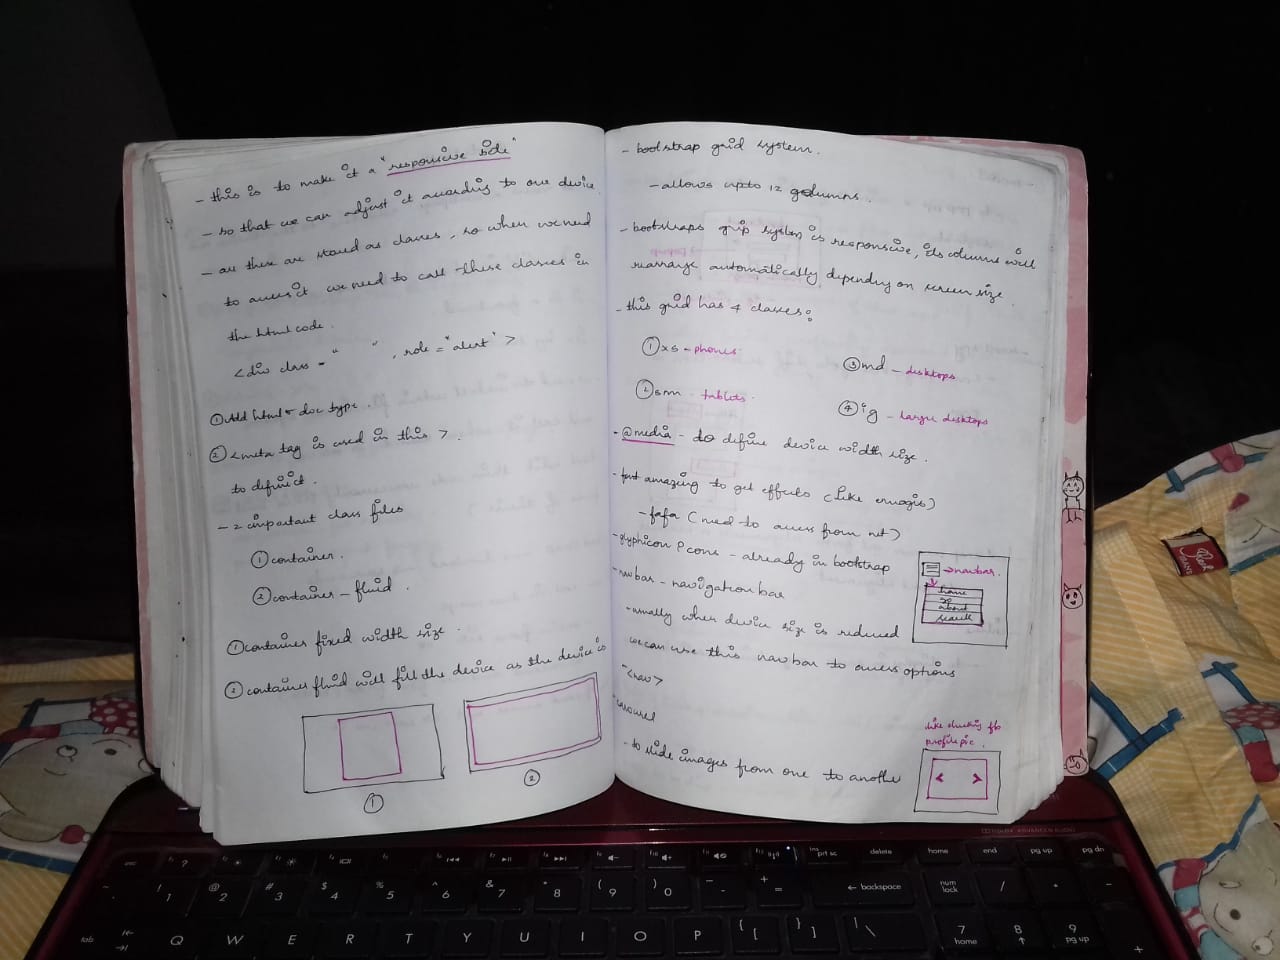 - this is to make it a "responsive side"
- so that we can adjust it according to one device.
- all these are stored as classes, so when we need
to access it we need to call these classes in
the html code.
<div class = "     ", role = "alert" >
① Add html & doc type.
② <meta tag is used in this >.
to define it.
- 2 important class files
① container.
② container - fluid.
① container fixed width size.
② container fluid will fill the device as the device is
①
②
- bootstrap grid system.
- allows upto 12 columns.
- bootstraps grip system is responsive, its columns will
rearrange automatically depending on screen size.
- this grid has 4 classes:
① xs - phones
③ md - desktops
② sm - tablets.
④ lg - large desktops
- @media - to define device width size.
- font amazing to get effects (like emogis)
- fafa (need to access from net)
- glyphicon Icons - already in bootstrap
- navbar - navigation bar
- usually when device size is reduced
we can use this navbar to access options
- <nav>
- carousel
- to slide images from one to another
→ navbar.
home
about
search
like checking fb
profile pic.
< >
esc
? 
prt sc
delete
home
end
pg up
pg dn
! 1 @ 2 # 3 $ 4 % 5 ^ 6 & 7 * 8 ( 9 ) 0 - + =
← backspace
num lock
/ * -
tab
Q W E R T Y U I O P { [ } ] | \
7 home
8
9 pg up
+